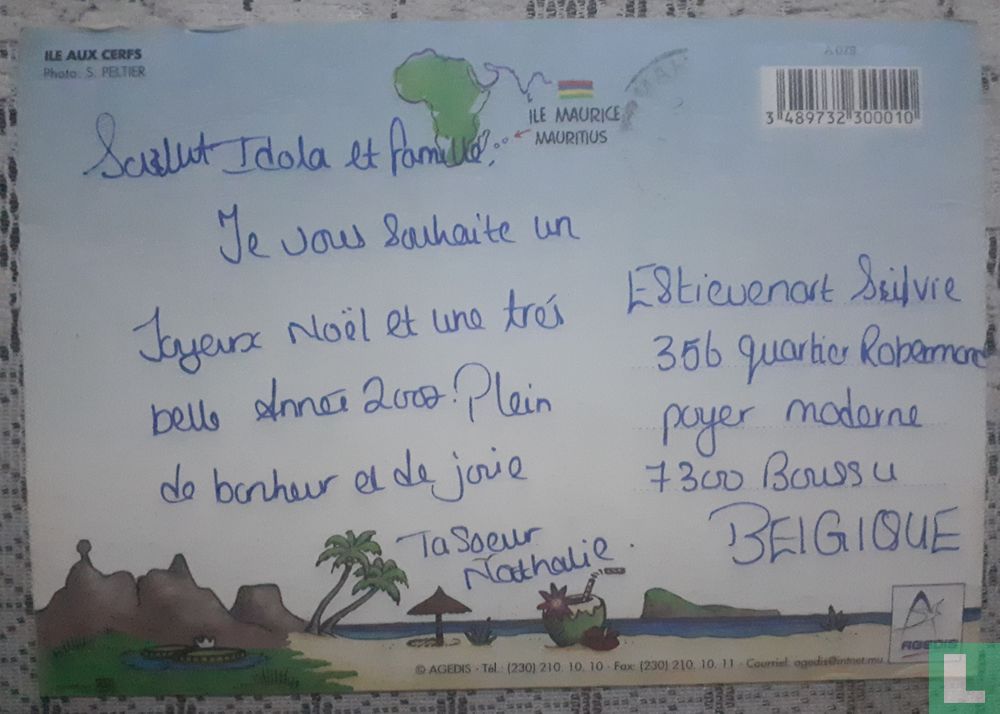 ILE AUX CERFS
Photo: S. PELTIER
ILE MAURICE
MAURITIUS
3 489732 300010
Salut Idola et famille,
Je vous souhaite un
Joyeux Noël et une trés
belle Année Plein
de bonheur et de joie
Ta Soeur
Nathalie.
EStievenart
356 quartier
payer moderne
7300 Boussu
BElGIQUE
© AGEDIS - Tél.: (230) 210. 10. 10 - Fax: (230) 210. 10. 11 - Courriel: agedis@intnet.mu
AGEDIS
L